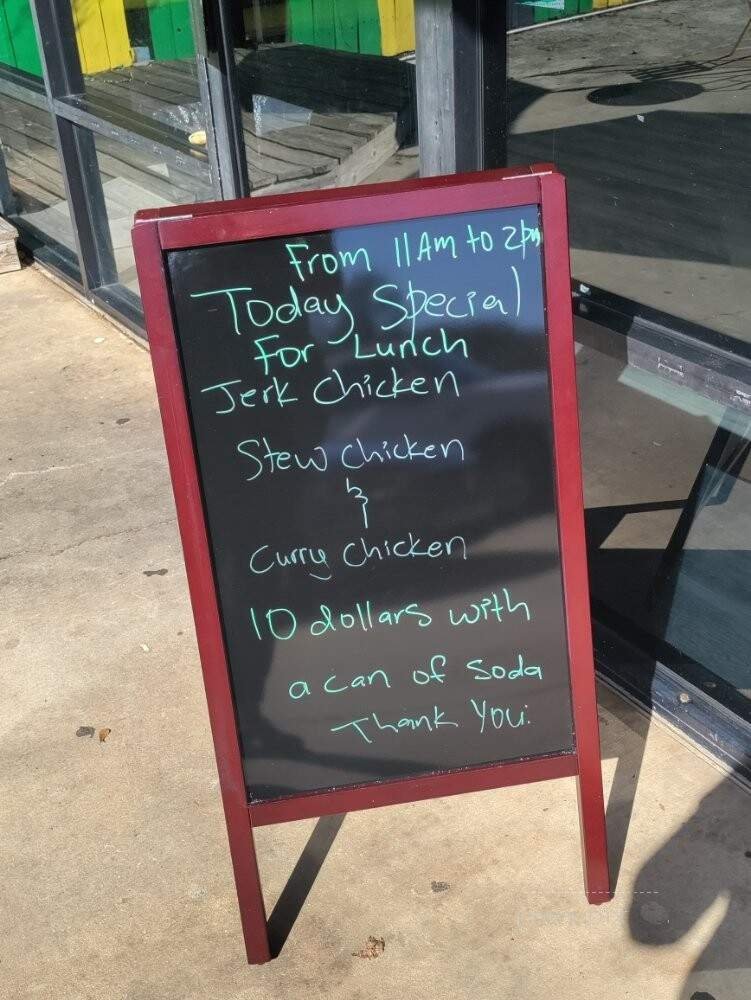 From 11Am to 2pm
Today Special
For Lunch
Jerk chicken
Stew chicken
&
Curry chicken
10 dollars with
a can of soda
Thank You.